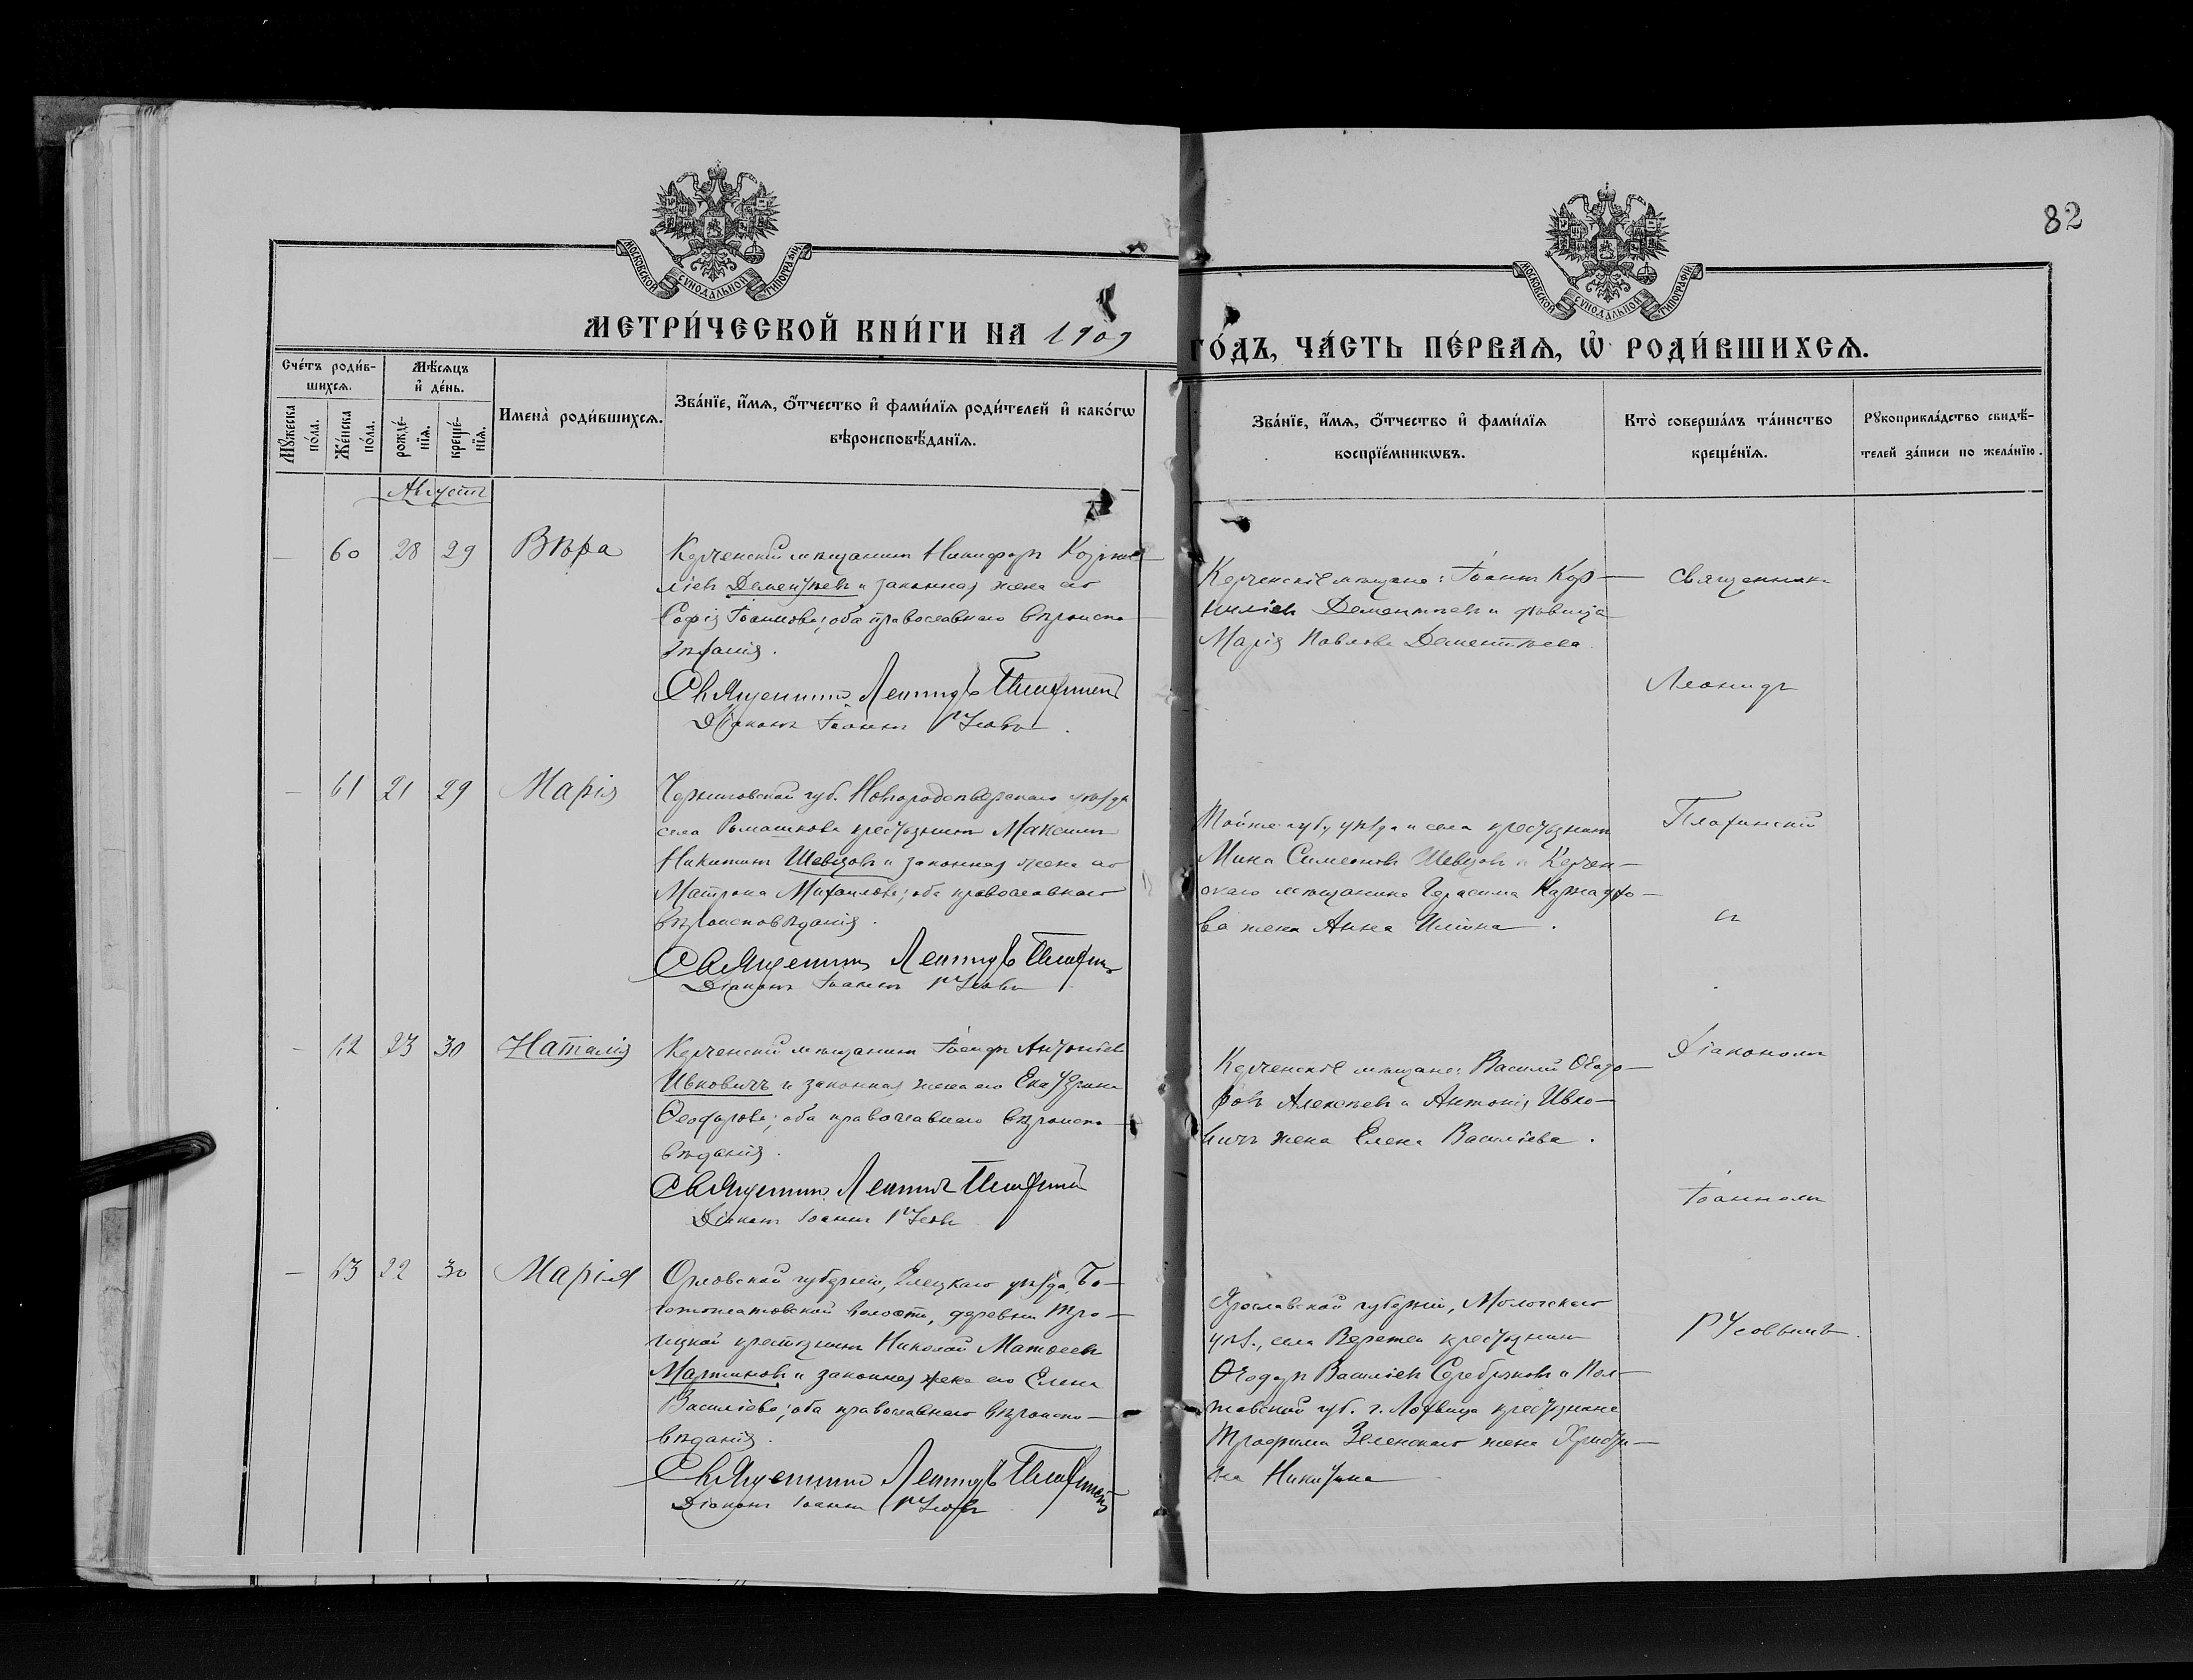 82
МОСКОВСКОЙ СУНОДАЛЬНОЙ ТИПОГРАФІИ
МОСКОВСКОЙ СУНОДАЛЬНОЙ ТИПОГРАФІИ
МЕТРИ́ЧЕСКОЙ КНИ́ГИ НА 1909
ГО́ДЪ, ЧА́СТЬ ПЕ́РВАЯ, Ѡ РОДИ́ВШИХСЯ.
Сче́тъ роди́в-
шихся.
Мꙋ́жеска по́ла.
Же́нска по́ла.
Мѣ́сяцъ
и҆ де́нь.
рожде́-нїя.
креще́-нїя.
Имена̀ роди́вшихся.
Зва́нїе, и҆́мя, ѻ҆́тчество и҆ фами́лїя роди́телей и҆ како́гѡ
вѣроисповѣ́данїя.
Зва́нїе, и҆́мя, ѻ҆́тчество и҆ фами́лїя
воспрїе́мникѡвъ.
Кто̀ соверша́лъ та́инство
креще́нїя.
Рꙋкоприкла́дство свидѣ́-
телей за́писи по жела́нїю.
Августъ
— 60 28 29 Вѣра
Керченскій мѣщанинъ Никифоръ Корни-
ліевъ Дементьевъ и законная жена его
Софія Іоаннова; оба православнаго вѣроиспо-
вѣданія.
Священникъ Леонидъ
Діаконъ Іоаннъ Русовъ.
Керченскіе мѣщане: Іоаннъ Кор-
ниліевъ Дементьевъ и дѣвица
Марія Павлова Дементьева.
Священникъ
Леонидъ
— 61 21 29 Марія
Черниговской губ. Новгородсѣверскаго уѣзда
села Ромашкова крестьянинъ Максимъ
Никитинъ Шевцовъ и законная жена его
Матрона Михаилова; оба православнаго
вѣроисповѣданія.
Священникъ Леонидъ
Діаконъ Іоаннъ Русовъ
Той же губ., уѣзда и села крестьянинъ
Мина Симеоновъ Шевцовъ и Керчен-
скаго мѣщанина Герасима
ва жена Анна Ильина.
и
— 62 23 30 Наталія
Керченскій мѣщанинъ Іосифъ Антоніевъ
Ивковичъ и законная жена его Екатерина
Ѳеодорова; оба православнаго вѣроиспо-
вѣданія.
Священникъ Леонидъ
Діаконъ Іоаннъ Русовъ
Керченскіе мѣщане: Василій Ѳеодо-
ровъ Алексѣевъ и Антонія Ивко-
вичъ жена Елена Васильева.
Діакономъ
Іоанномъ
— 63 22 30 Марія
Орловской губерніи, Елецкаго уѣзда, Бо-
гатоплатовской волости, деревни Тро-
ицкой крестьянинъ Николай Матѳеевъ
Мартиновъ и законная жена его Елена
Васильева; оба православнаго вѣроиспо-
вѣданія.
Священникъ Леонидъ
Діаконъ Іоаннъ Русовъ
Ярославской губерніи, Мологскаго
уѣз., села Веретеи крестьянинъ
Ѳеодоръ Васильевъ Серебряковъ и Пол-
тавской губ. г. Лохвица крестьянина
Трофима Зеленскаго жена Христи-
на Никитина
Русовымъ.